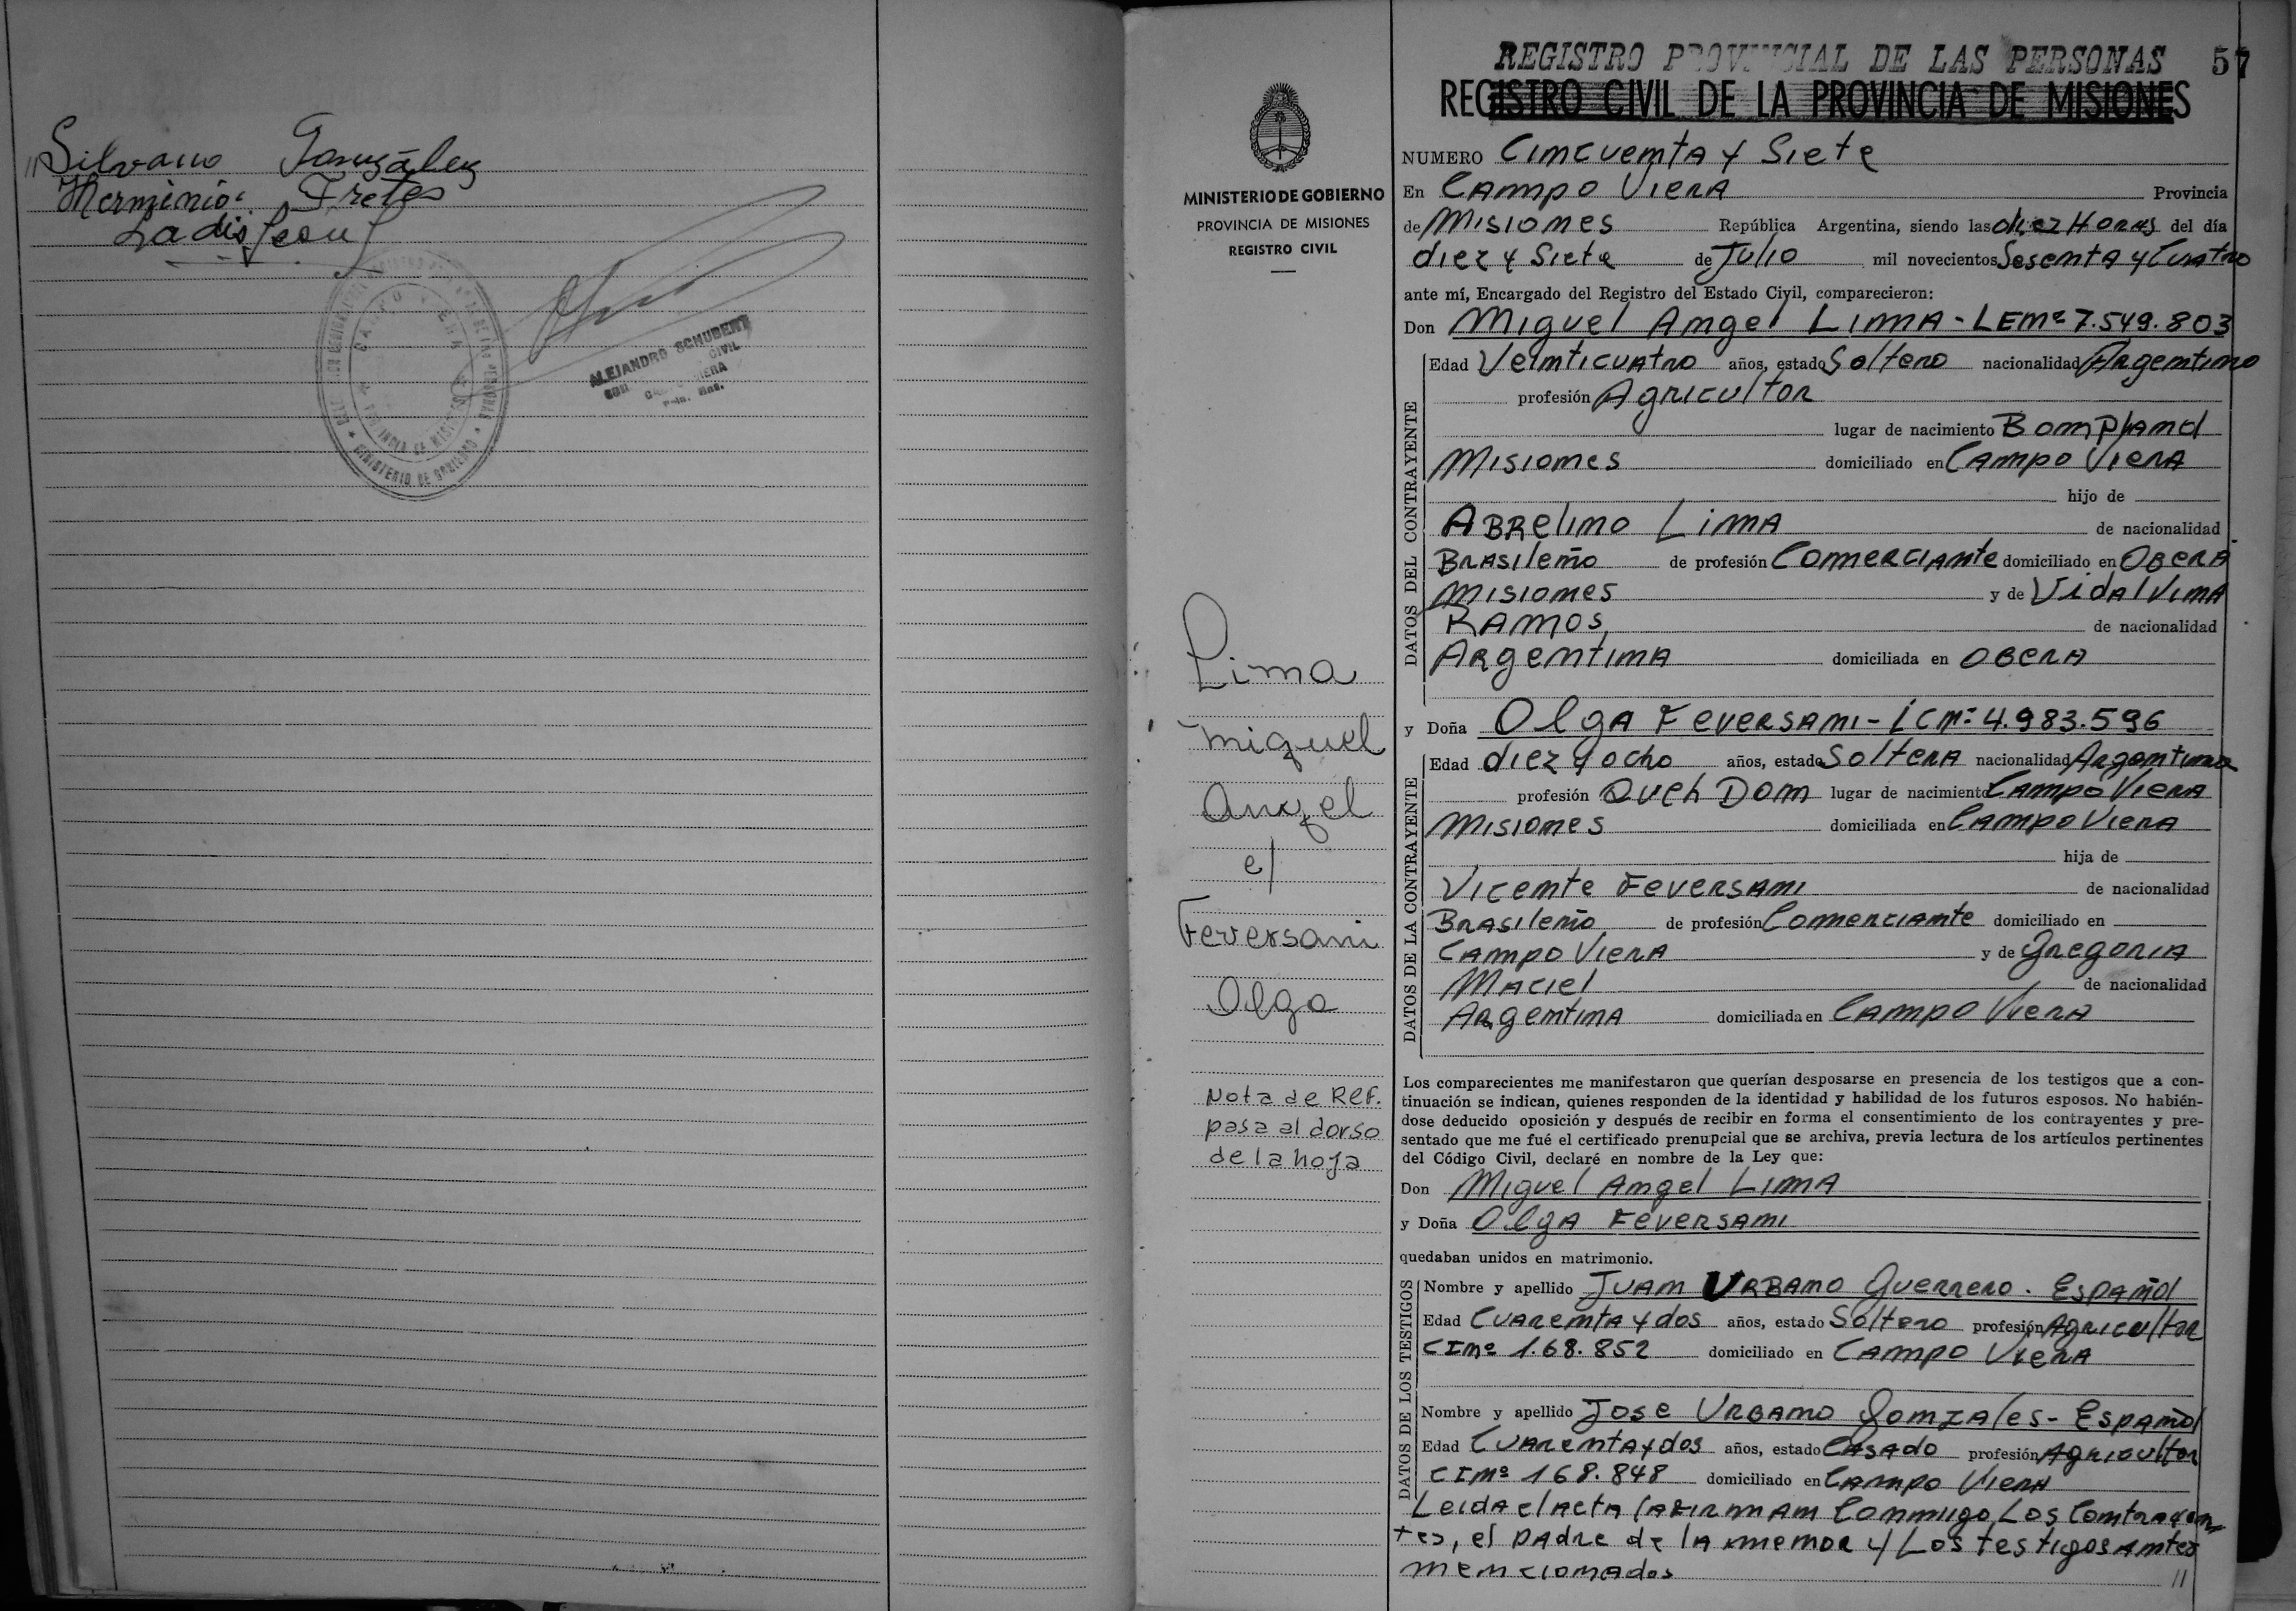 Silvano González
Herminio Fretes
Ladis
CAMPO VIERA
MINISTERIO DE GOBIERNO
ALEJANDRO SCHUBERT
CIVIL
VIERA
MINISTERIO DE GOBIERNO
PROVINCIA DE MISIONES
REGISTRO CIVIL
Lima
Miguel
Angel
c/
Feversani
Olga
Nota de Ref.
pasa al dorso
de la hoja
REGISTRO PROVINCIAL DE LAS PERSONAS 57
REGISTRO CIVIL DE LA PROVINCIA DE MISIONES
NUMERO Cincuenta y Siete
En Campo Viera Provincia
de Misiones República Argentina, siendo las diez Horas del día
diez y Siete de Julio mil novecientos Sesenta y Cuatro
ante mí, Encargado del Registro del Estado Civil, comparecieron:
Don Miguel Angel Lima - LEnº 7.549.803
DATOS DEL CONTRAYENTE
Edad Veinticuatro años, estado Soltero nacionalidad Argentino
profesión Agricultor
lugar de nacimiento Bompland
Misiones domiciliado en Campo Viera
hijo de
Abrelino Lima de nacionalidad
Brasileño de profesión Comerciante domiciliado en Obera
Misiones y de Vidalvina
Ramos de nacionalidad
Argentina domiciliada en Obera
y Doña Olga Feversani - LCnº 4.983.596
DATOS DE LA CONTRAYENTE
Edad diez y ocho años, estado Soltera nacionalidad Argentina
profesión Queh Dom lugar de nacimiento Campo Viera
Misiones domiciliada en Campo Viera
hija de
Vicente Feversani de nacionalidad
Brasileño de profesión Comerciante domiciliado en
Campo Viera y de Gregoria
Maciel de nacionalidad
Argentina domiciliada en Campo Viera
Los comparecientes me manifestaron que querían desposarse en presencia de los testigos que a con-
tinuación se indican, quienes responden de la identidad y habilidad de los futuros esposos. No habién-
dose deducido oposición y después de recibir en forma el consentimiento de los contrayentes y pre-
sentado que me fué el certificado prenupcial que se archiva, previa lectura de los artículos pertinentes
del Código Civil, declaré en nombre de la Ley que:
Don Miguel Angel Lima
y Doña Olga Feversani
quedaban unidos en matrimonio.
DATOS DE LOS TESTIGOS
Nombre y apellido Juan Urbano Guerrero. Español
Edad Cuarenta y dos años, estado Soltero profesión Agricultor
CInº 1.68.852 domiciliado en Campo Viera
Nombre y apellido Jose Urbano Gonzales - Español
Edad Cuarenta y dos años, estado Casado profesión Agricultor
CInº 168.848 domiciliado en Campo Viera
Leida el acta la firman Conmigo Los Contrayen
tes, el padre de la menor y Los testigos antes
mencionados //